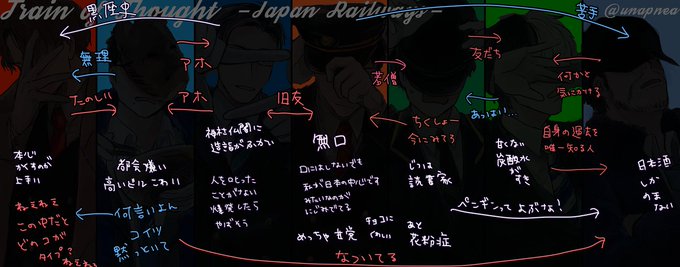 Train of Thought -Japan Railways-
@unapnea
黒歴史
苦手
無理
アホ
たのしい
アホ
旧友
若僧
友だち
何かと
気にかけてる
ちくしょー
今にみてろ
あっはい…
自身の過去を
唯一知る人
本心
かくすのが
上手い
都会嫌い
高いビルこわい
神社仏閣に
造詣がふかい
人を叱った
ことがない
爆発したら
やばそう
無口
口にはしないでも
私が日本の中心です
みたいなのが
にじみでてる
めっちゃ甘党
チョコに
くわしい
じつは
読書家
あと
花粉症
甘くない
炭酸水が
すき
ペンギンってよぶなよ!
日本酒
しか
のま
ない
ねえねえ
この中だと
どのコが
タイプ??
ねえねえ
何言いよん
コイツ
黙っといて
なついてる